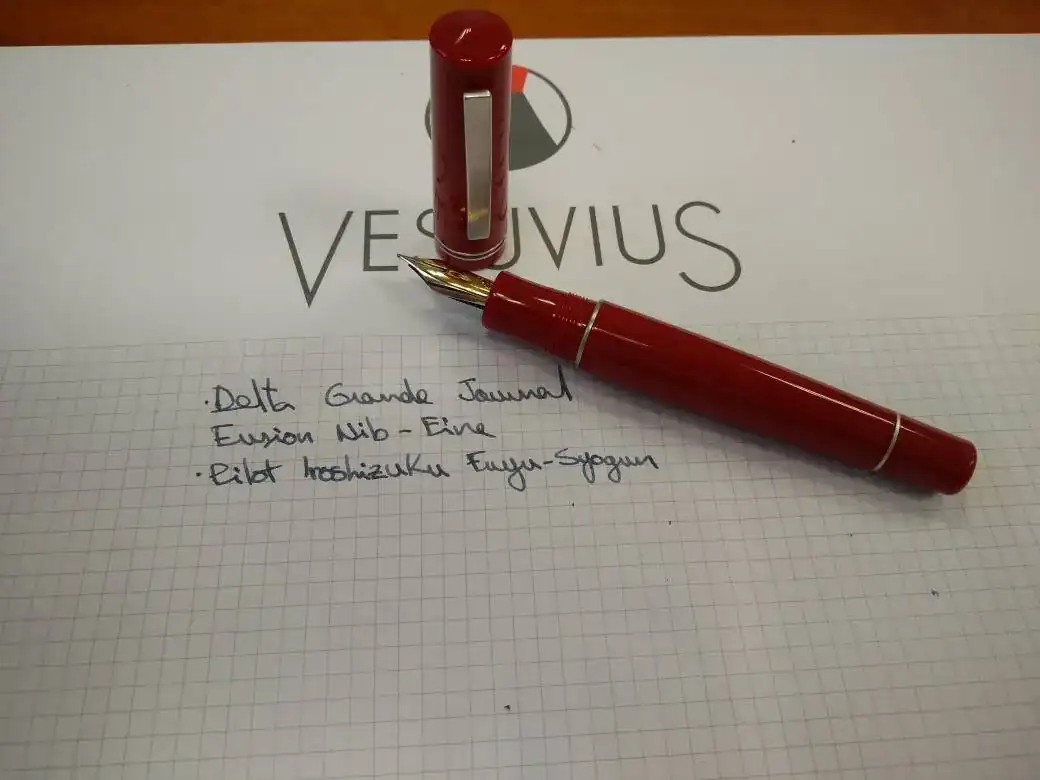 VESUVIUS
·Delta Grande Journal
Fusion Nib - Fine
·Pilot Iroshizuku Fuyu-Syogun